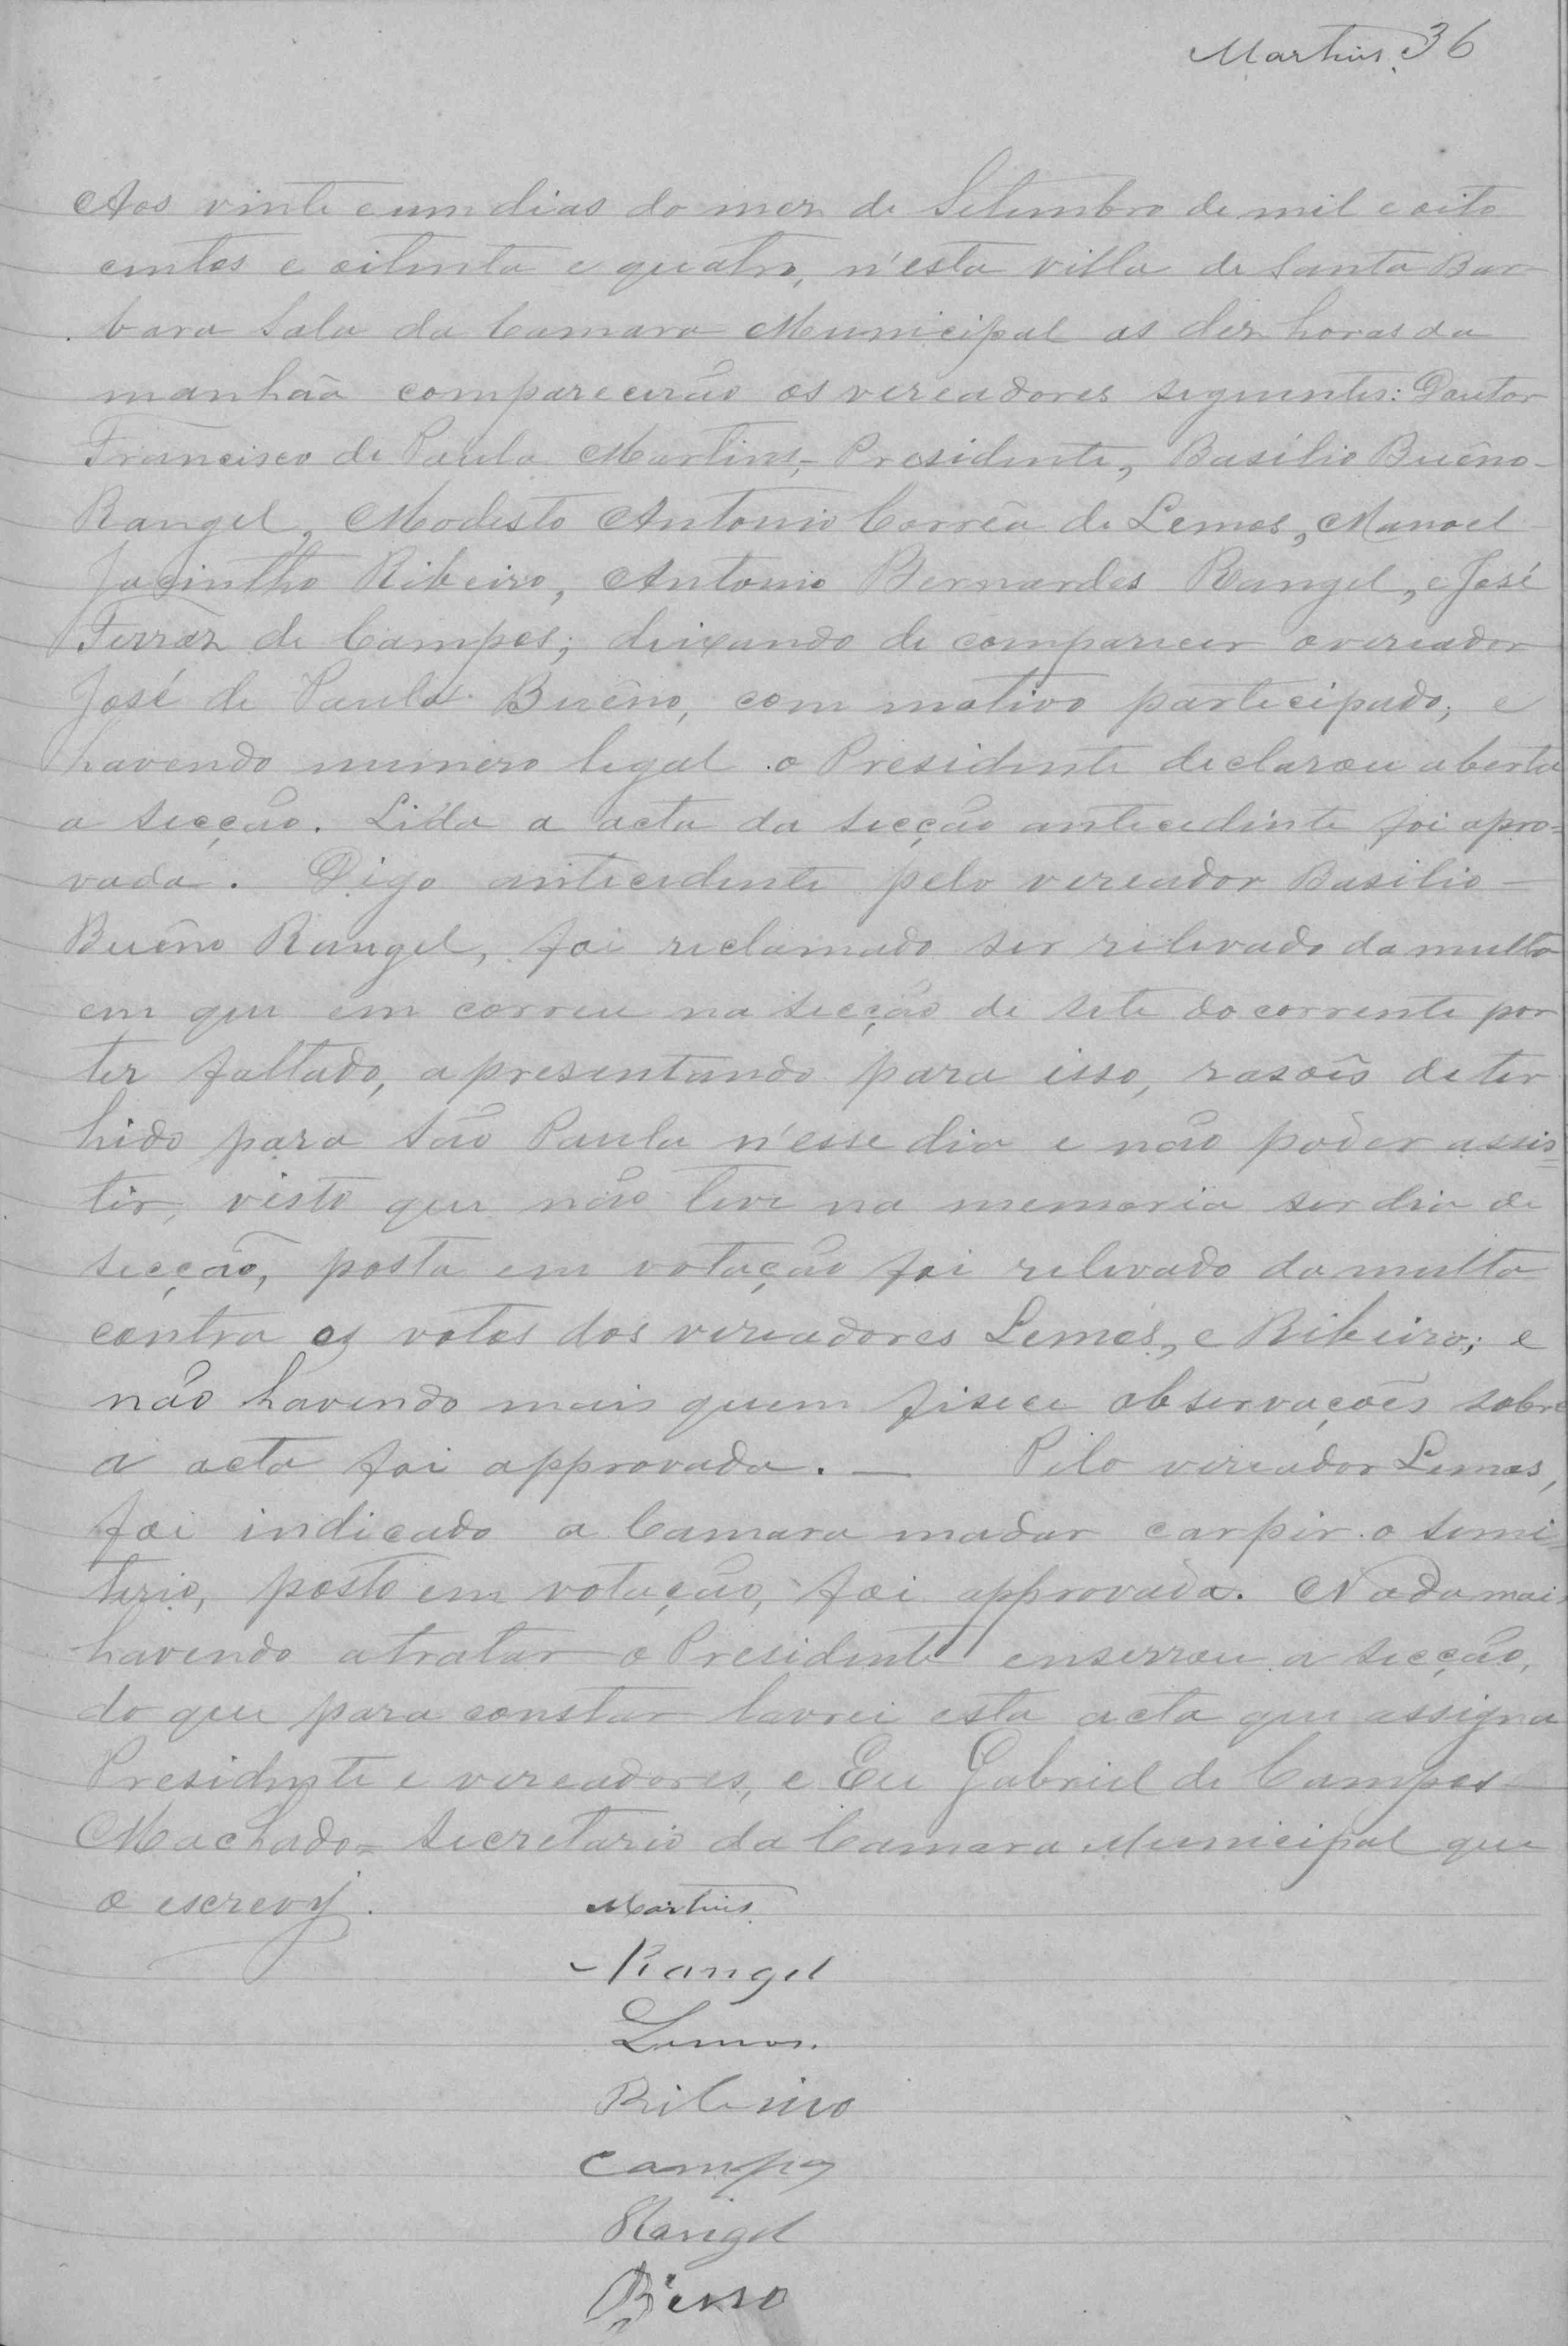 Martins. 36
Aos vinte e um dias do mez de Setembro de mil e oito
centos e oitenta e quatro, n'esta villa de Santa Bar
bara Sala da Camara Municipal as dez horas da
manhãa comparecerão os vereadores seguintes: Doutor
Francisco de Paula Martins, Presidente, Basílio Buêno
Rangel, Modesto Antonio Corrêa de Lemos, Manoel
Jacintho Ribeiro, Antonio Bernardes Rangel, e José
Ferraz de Campos; deixando de comparecer o vereador
José de Paula Buêno, com motivo participado; e
havendo numero legal o Presidente declarou aberta
a secção. Lida a acta da secção antecedente foi apro=
vada. Digo antecedente pelo vereador Basilio
Buêno Rangel, foi reclamado ser relevado da multa
em que em correu na secção de sete do corrente por
ter faltado, apresentando para isso, rasões de ter
hido para São Paulo n'esse dia e não poder assis=
tir, visto que não teve na memoria ser dia de
secção, posta em votação foi relevado da multa
contra os votos dos vereadores Lemos, e Ribeiro; e
não havendo mais quem fisece observações sobre
a acta foi approvada. — Pelo vereador Lemos,
foi indicado a Camara madar carpir o semi=
terio, posto em votação, foi approvada. Nada mais
havendo a tratar o Presidente enserrou a secção,
do que para constar lavrei esta acta que assigna
Presidente e vereadores, e Eu Gabriel de Campos
Machado= Secretario da Camara Municipal que
o escrevy.
Martins.
Rangel
Lemos.
Ribeiro
Campos
Rangel
Bueno